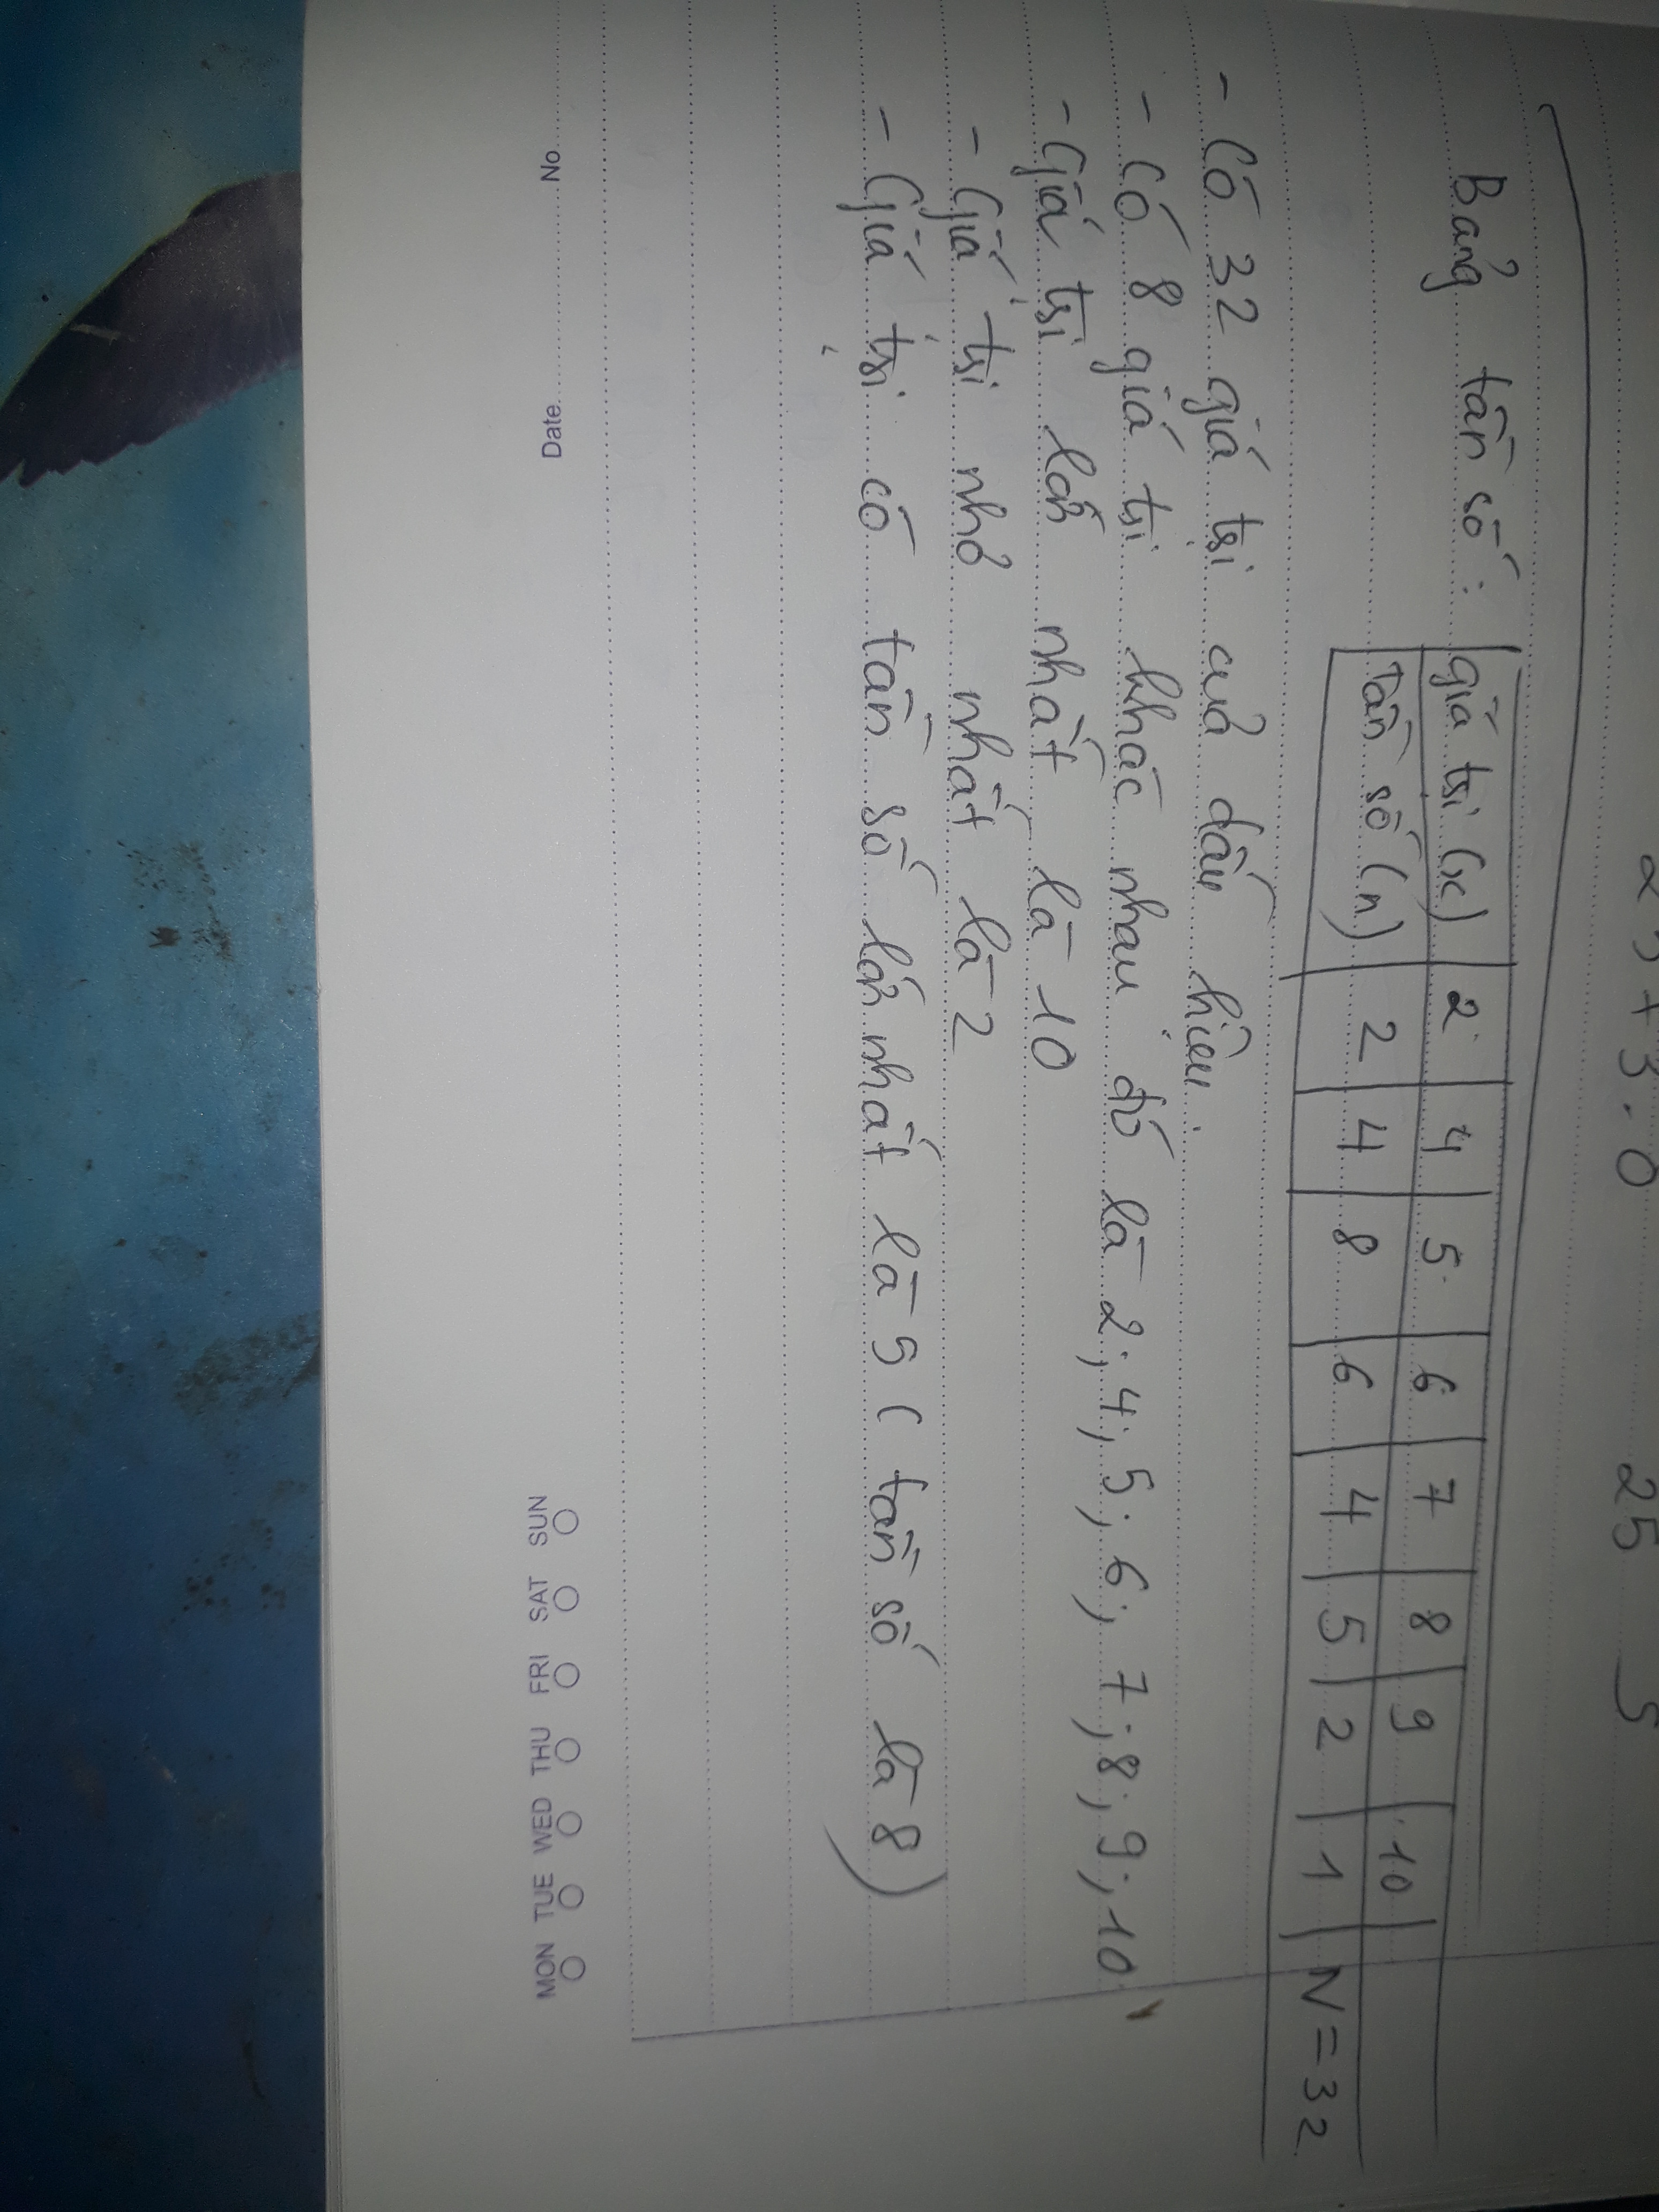 25
Bảng tần số:
giá trị (x) 2 4 5 6 7 8 9 10
Tần số (n) 2 4 8 6 4 5 2 1 N = 32
- Có 32 giá trị của dấu hiệu
- Có 8 giá trị khác nhau đó là 2; 4; 5; 6; 7; 8; 9; 10
- Giá trị lớn nhất là 10
- Giá trị nhỏ nhất là 2
- Giá trị có tần số lớn nhất là 5 ( tần số là 8)
No Date
MON TUE WED THU FRI SAT SUN